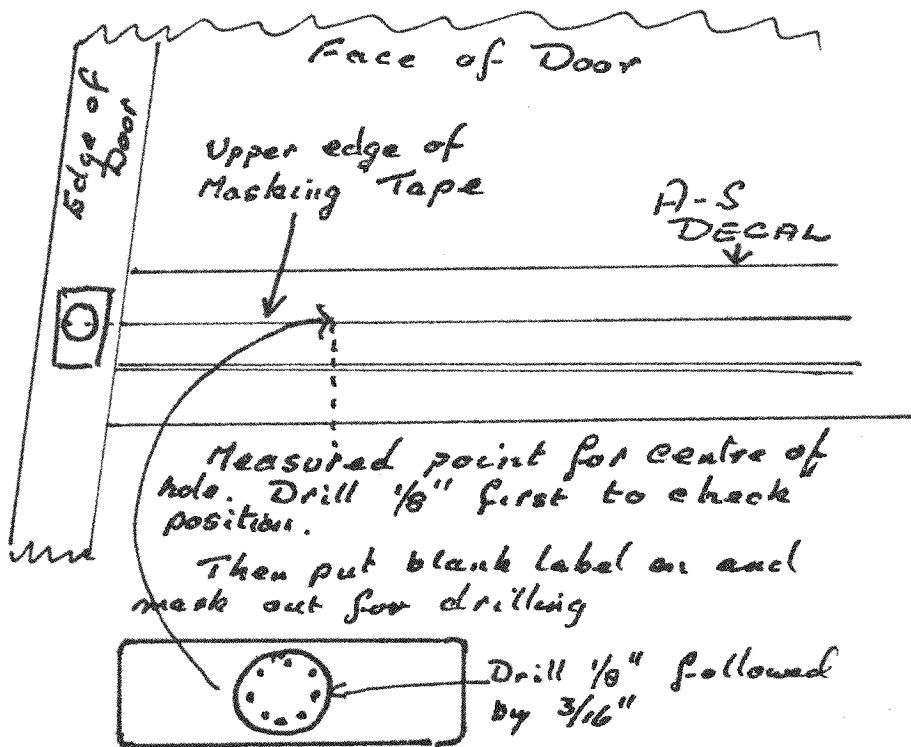 Face of Door
Edge of
Door
Upper edge of
Masking Tape
A-S
DECAL
Measured point for centre of
hole. Drill 1/8" first to check
position.
Then put blank label on and
mark out for drilling
Drill 1/8" followed
by 3/16"